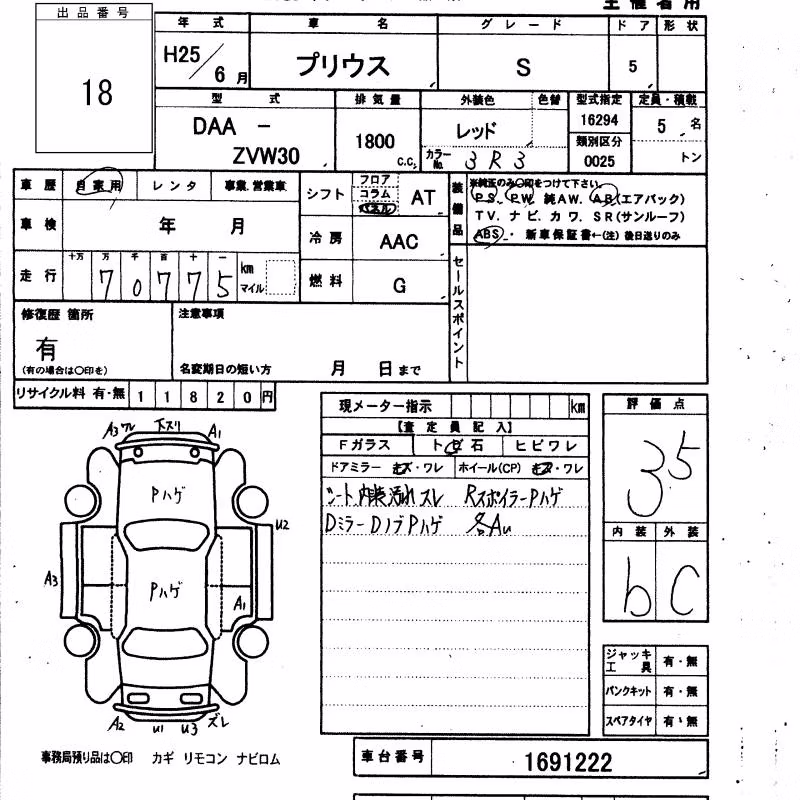 出品番号
18
年式
H25/6月
車名
プリウス
グレード
S
ドア
5
形状
型式
DAA - ZVW30
排気量
1800
c.c.
外装色
色替
レッド
カラーNo.
3R3
型式指定
16294
類別区分
0025
定員・積載
5 名
トン
車歴
自家用
レンタ
事業.営業車
車検
年 月
走行
十万 万 千 百 十 一
70775
km
マイル
シフト
フロア
コラム
パネル
AT
冷房
AAC
燃料
G
装備品
※純正のみ○印をつけて下さい。
PS. PW. 純AW. AB(エアバック)
TV. ナビ. カワ. SR(サンルーフ)
ABS. 新車保証書←(注) 後日送りのみ
セールスポイント
修復歴 箇所
有
(有の場合は○印を)
注意事項
名変期日の短い方
月 日まで
リサイクル料 有・無 11820円
現メーター指示
km
【査定員記入】
Fガラス
トビ石
ヒビワレ
ドアミラー キズ・ワレ
ホイール(CP) キズ・ワレ
シート内装汚れスレ RスポイラーPハゲ
DミラーDノブPハゲ 各Au
評価点
35
内装
外装
b
C
ジャッキ
工具
有・無
パンクキット
有・無
スペアタイヤ
有・無
A3ワレ
下スリ
A1
Pハゲ
U2
A3
Pハゲ
A1
A2
U1
U3
ズレ
事務局預り品は○印 カギ リモコン ナビロム
車台番号
1691222